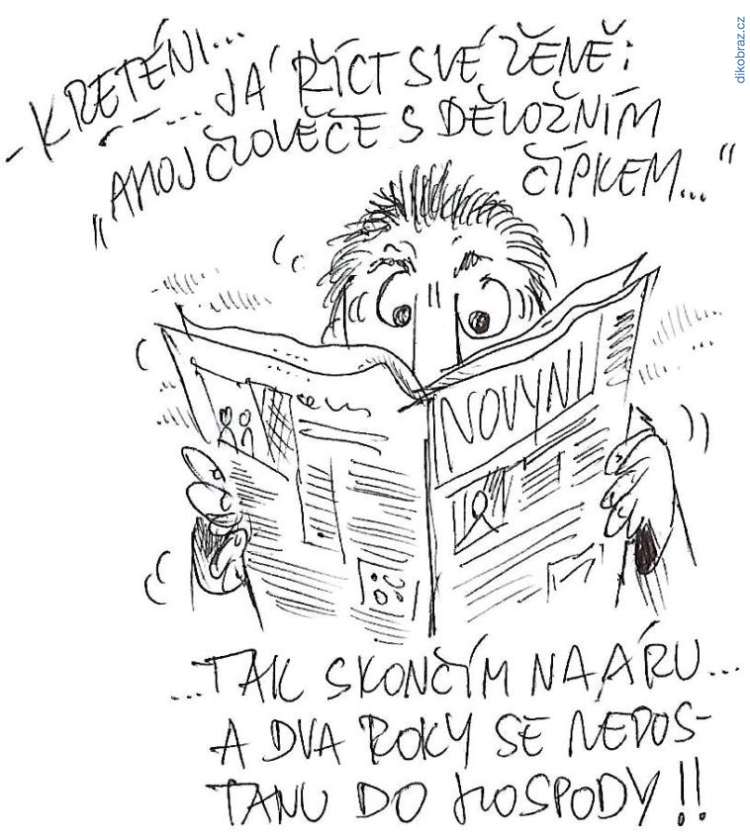 dikobraz.cz
- KRETÉNI...
... JÁ ŘÍCT SVÉ ŽENĚ:
„AHOJ ČLOVĚČE S DĚLOŽNÍM
ČÍPKEM..."
NOVYNI
...TAK SKONČÍM NA ÁRU...
A DVA ROKY SE NEDOS-
TANU DO HOSPODY!!